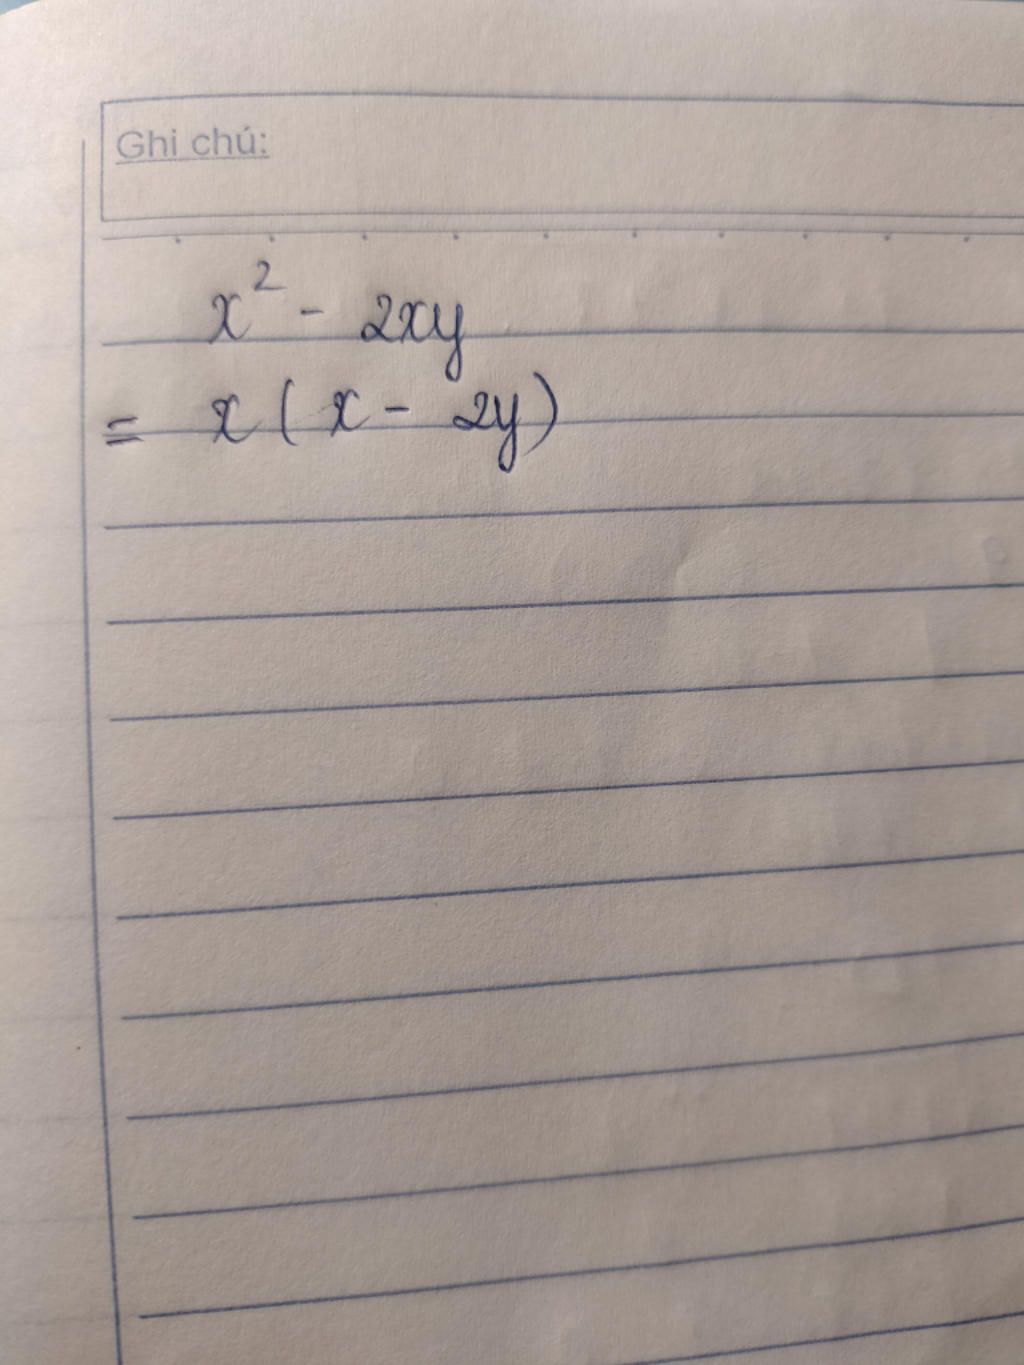 Ghi chú:
x² - 2xy
= x ( x - 2y)